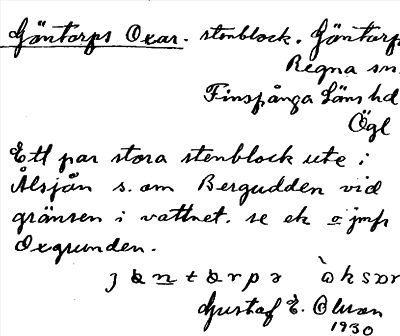 Göntorps Oxar. stenblock. Göntorp
Regna sn.
Finspånga Läns hd
Ögl
Ett par stora stenblock ute i
Ålsjön s. om Bergudden vid
gränsen i vattnet. se ek o jmf
Oxgrunden.
Gustaf E. Olsson
1930